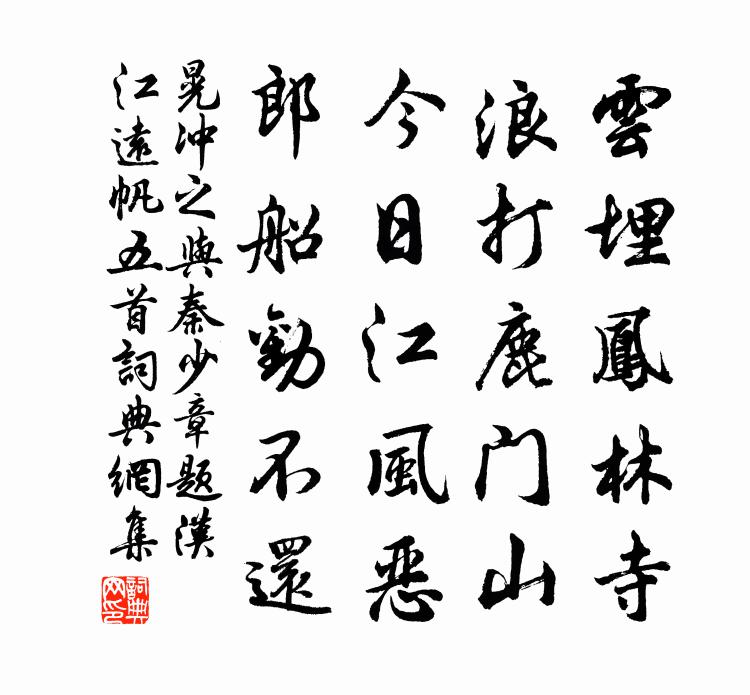 雲埋鳳林寺
浪打鹿门山
今日江風惡
郎船勸不還
晁冲之與秦少章題漢
江遠帆五首詞典網集
詞典
网印